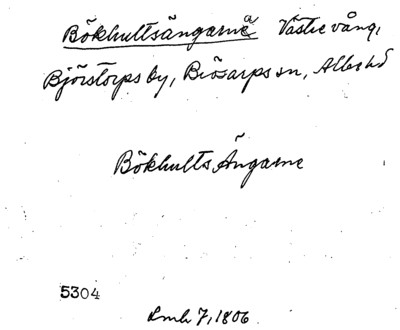 Bökhultsängarna Västre vång,
Björstorps by, Brösarps sn, Albo hd
Bökhults Ängarne
5304
Lmh 7, 1806.